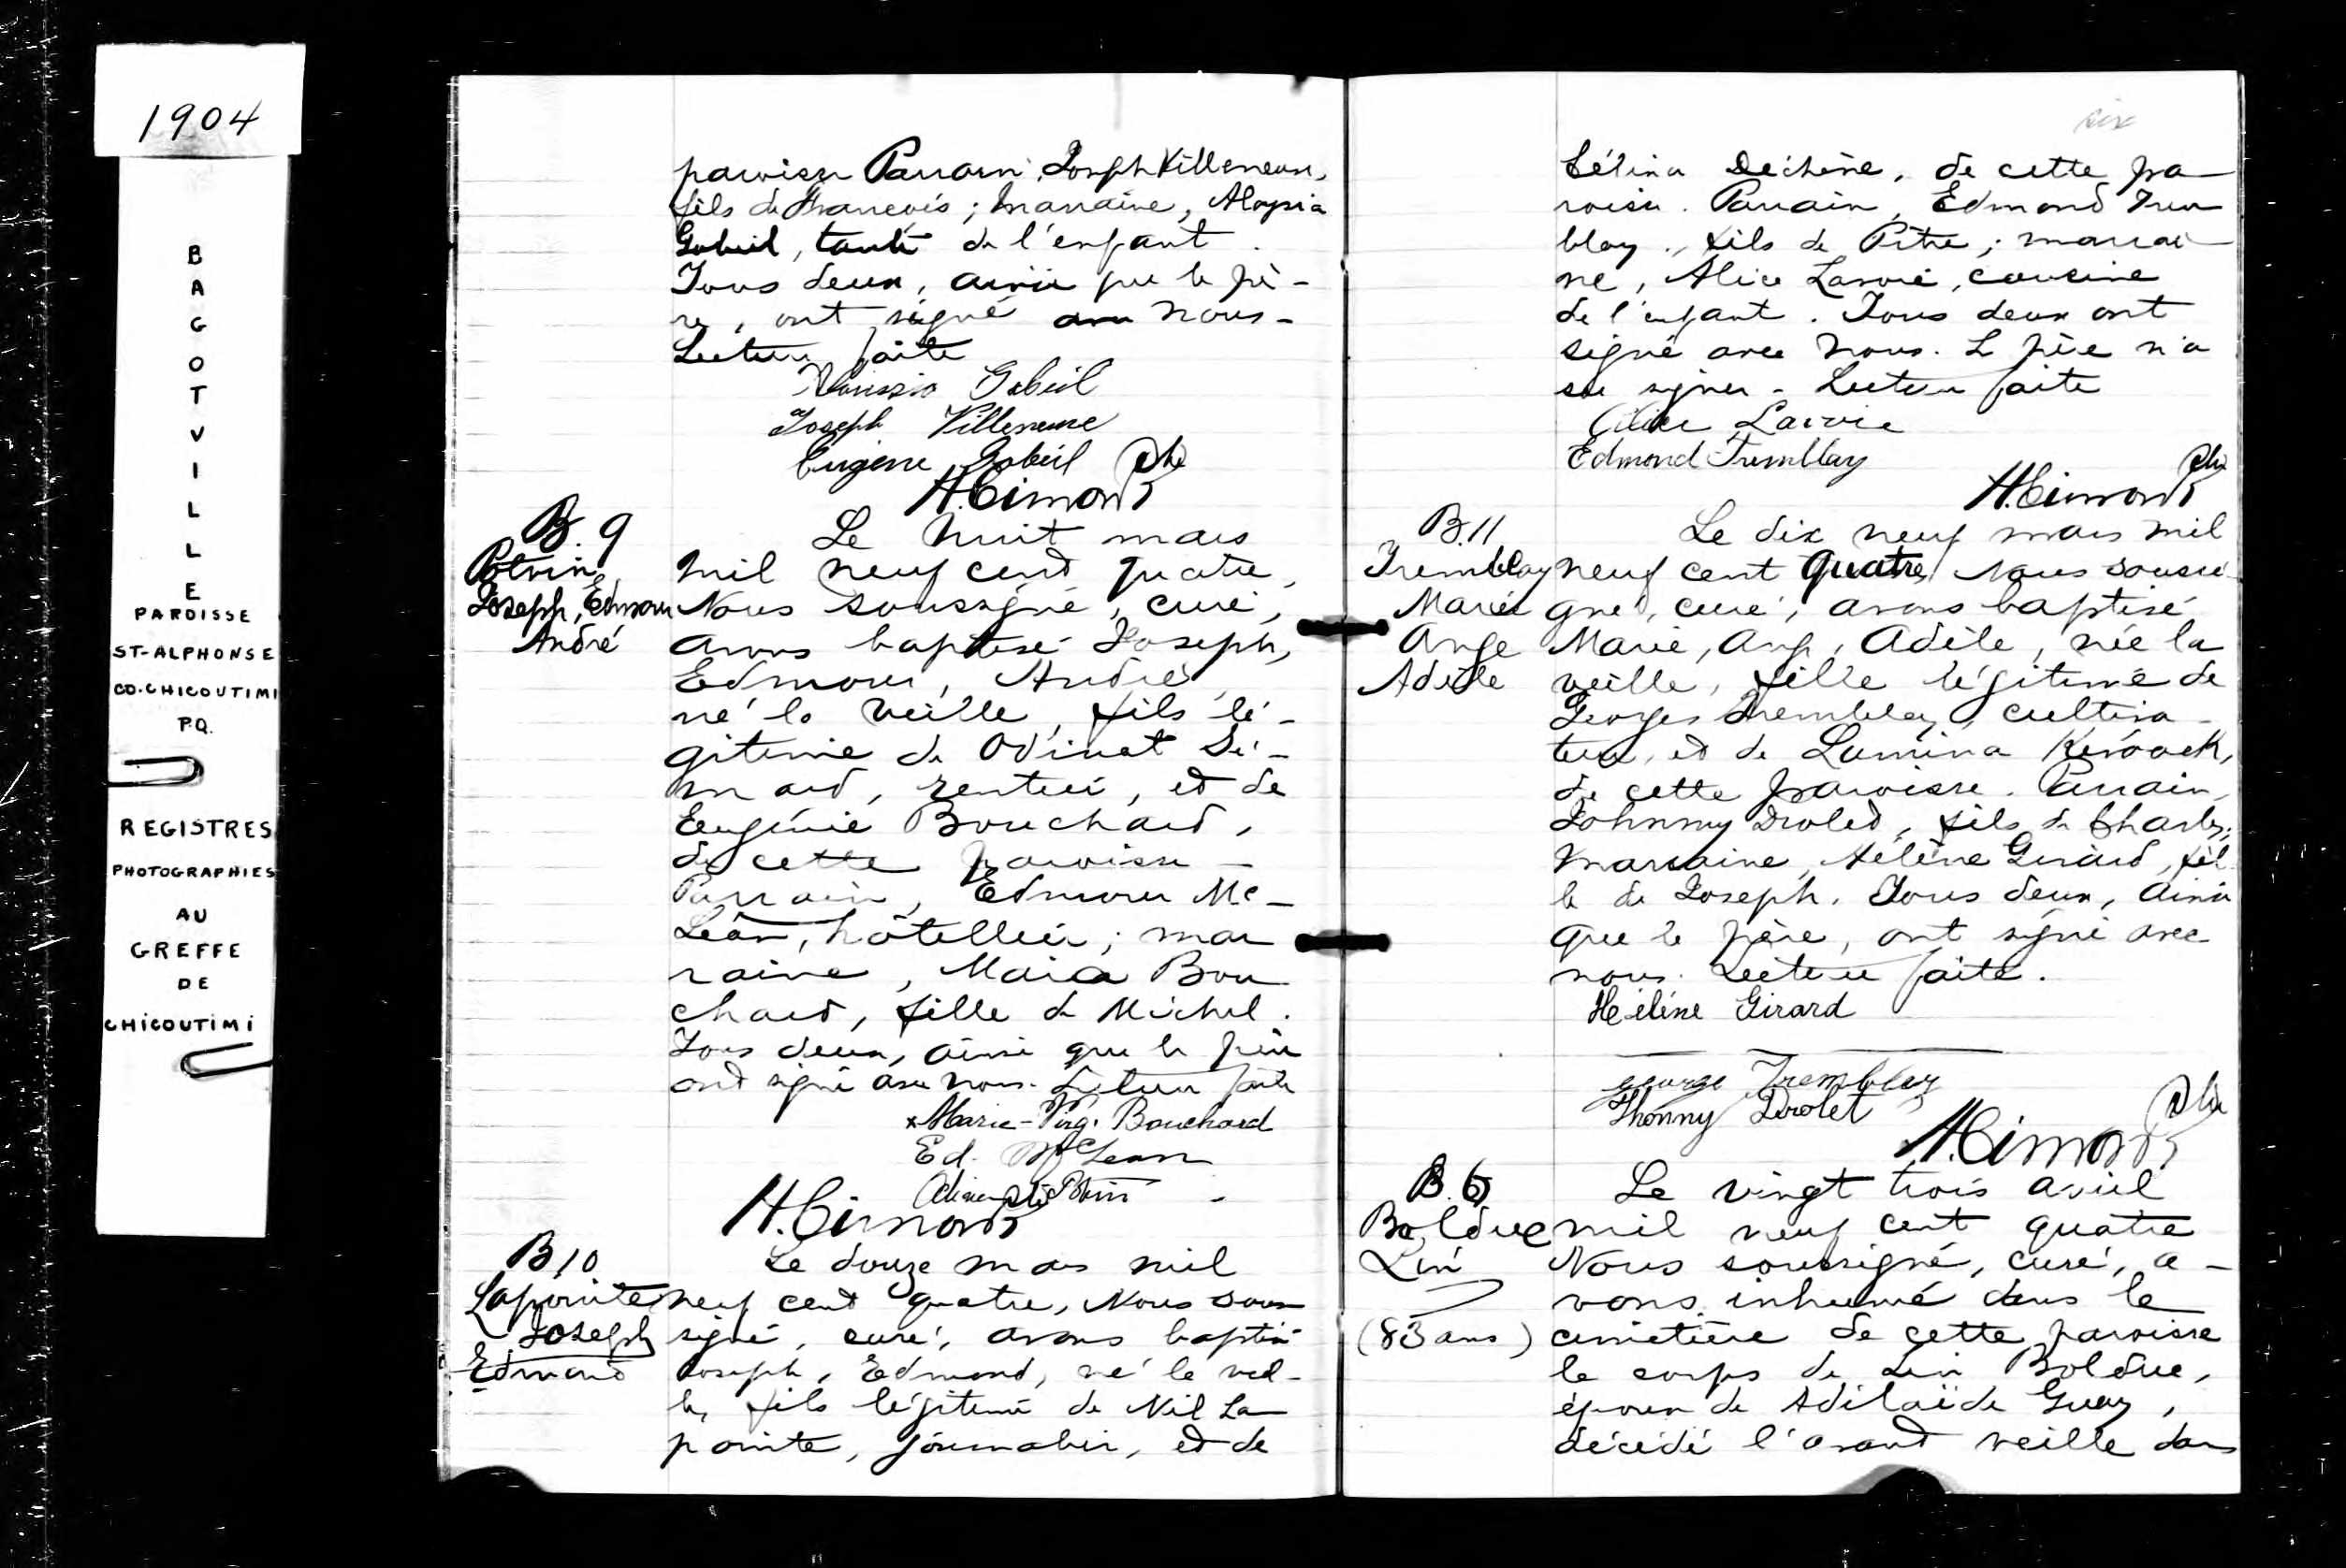 1904
BAGOTVILLE
PAROISSE
ST-ALPHONSE
CO. CHICOUTIMI
P.Q.
REGISTRES
PHOTOGRAPHIES
AU
GREFFE
DE
CHICOUTIMI
paroisse Parrain, Joseph Villeneuve,
fils de François; marraine, Aloysia
Gobeil, tante de l'enfant.
Tous deux, ainsi que le pè-
re, ont signé avec nous-
Lecture faite
Gobeil
Joseph Villeneuve
Eugène Gobeil
H. Cimon Ptre
B. 9
Potvin,
Joseph, Edmour
André
Le huit mars
mil neuf cent quatre,
Nous soussigné, curé,
avons baptisé Joseph,
Edmour, André,
né la veille, fils lé-
gitime de
, rentier, et de
Eugénie Bouchard,
de cette paroisse -
Parrain, Edmour Mc-
Lean, hôtellier; mar
raine, Maria Bou
chard, fille de Michel.
Tous deux, ainsi que le père
ont signé avec nous. Lecture faite
x Marie-Virg. Bouchard
Ed. McLean
Potvin
H. Cimon Ptre
B 10
Lapointe
Joseph
Edmond
Le douze mars mil
neuf cent quatre, Nous sous
signé, curé, avons baptisé
Joseph, Edmond, né la veil-
le, fils légitime de Nil La
pointe, journalier, et de
six
Célina Dechêne, de cette pa-
roisse. Parrain, Edmond Trem
blay, fils de Pitre; marrai-
ne, Alice Lavoie, cousine
de l'enfant. Tous deux ont
signé avec nous. L père n'a
su signer - Lecture faite
Alice Lavoie
Edmond Tremblay
H. Cimon Ptre
B. 11
Tremblay
Marie
Ange
Adèle
Le dix neuf mars mil
neuf cent quatre, Nous soussi
gné, curé, avons baptisé
Marie, Ange, Adèle, née la
veille, fille légitime de
Georges Tremblay, cultiva-
teur, et de Lumina Kérouack,
de cette paroisse. Parrain,
Johnny Drolet, fils de Charles;
marraine, Hélène Girard, fil
le de Joseph. Tous deux, ainsi
que le père, ont signé avec
nous. Lecture faite.
Hélène Girard
George Tremblay
Jhonny Drolet
H. Cimon Ptre
B. 6
Bolduc
Lin
(83 ans)
Le vingt trois avril
mil neuf cent quatre
Nous soussigné, curé, a-
vons inhumé dans le
cimetière de cette paroisse
le corps de Lin Bolduc,
époux de Adélaïde Guay,
décédé l'avant veille dans